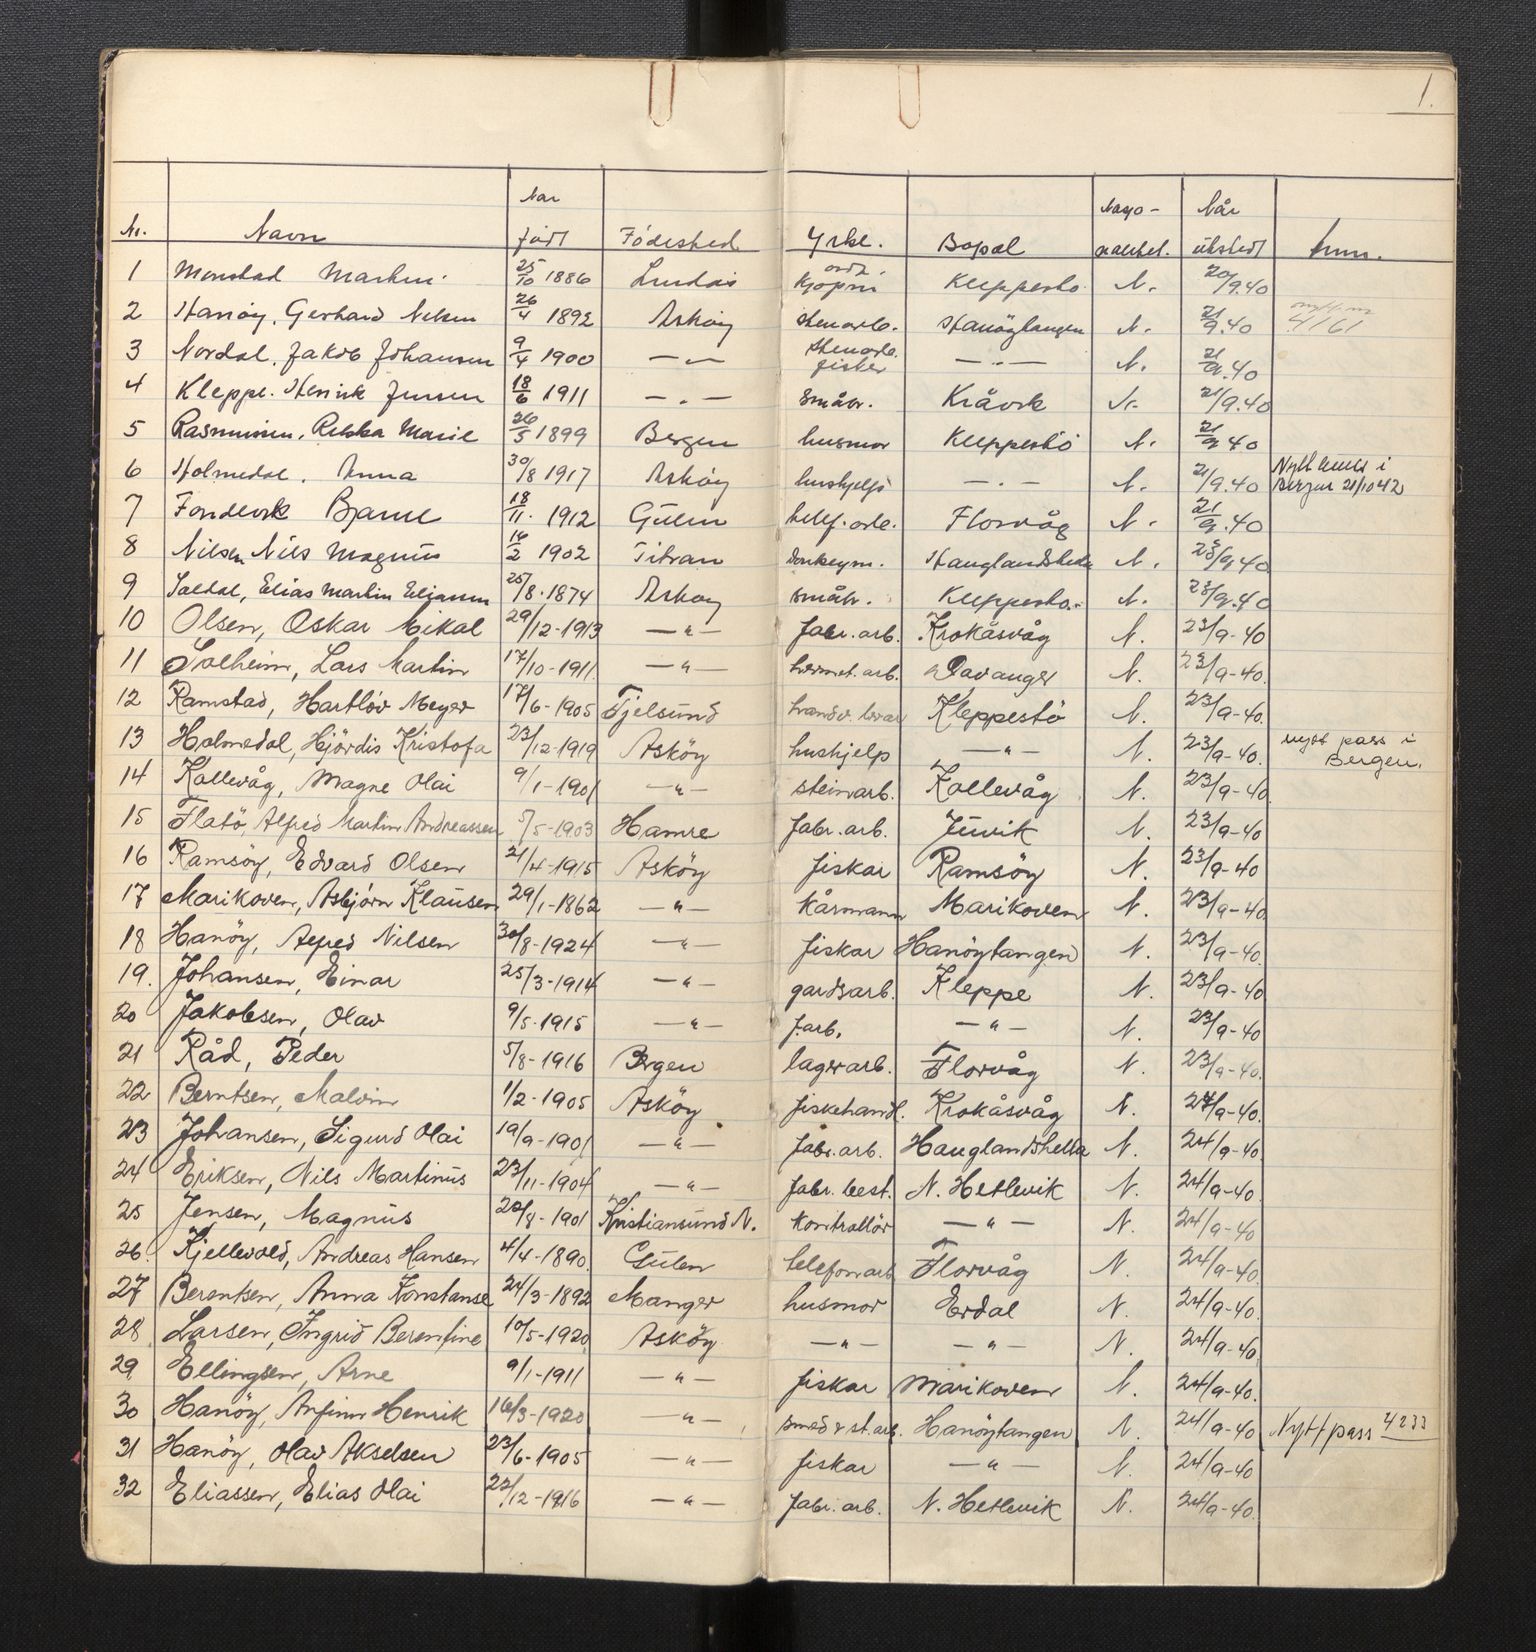 1.
Nr. Navn Når född Födested Yrke. Bopæl Najo-nalitet. Når utstedt Anm.
1 Monstad Martin. 25/10 1886 Lindås Kleppestö N. 20/9.40
2 Hanöy, Gerhard Nilsen 26/4 1892 Asköy stenarb. Hanöytangen N. 21/9.40 4161
3 Nordal, Jakob Johansen 9/4 1900 — " — stenarb. fisker — " — N. 21/9.40
4 Kleppe. Henrik Jensen 18/6 1911 — " — småbr. N. 21/9.40
5 Rasmussen, Marie 26/5 1899 Bergen husmor Kleppestö N. 21/9 40
6 Holmedal. Anna 30/8 1917 Asköy hushjelp — " — N. 21/9.40 Nytt i Bergen 21/10 42
7 Fondevik Bjarne 18/11. 1912 Gulen telef. arb. Florvåg N. 21/9.40
8 Nilsen Nils Magnus 16/2 1902 Titran donkeym. Hauglandshella N. 23/9.40
9 Soldal, Elias Martin Eliassen 25/8.1874 Asköy småbr. Kleppestö. N. 23/9.40
10 Olsen, Oskar Mikal 29/12-1913 — " — fabr. arb. Krokåsvåg N. 23/9-40
11 Solheim, Lars Martin 17/10-1911. — " — hermet. arb. Davanger N. 23/9-40.
12 Ramstad, Hartlöv Meyer 17/6-1905 Tjelsund Kleppestö N. 23/9-40.
13 Holmedal, Hjördis Kristofa 23/12-1919 Asköy hushjelp — " — N. 23/9-40. nytt pass i Bergen.
14 Kollevåg, Magne Olai 9/1-1901 — " — steinarb. Kollevåg N. 23/9-40.
15 Flatö, Alfred Martin Andreassen 5/5-1903 Hamre fabr. arb. Juvik N. 23/9-40
16 Ramsöy, Edvard Olsen 21/4-1915 Asköy fiskar Ramsöy N. 23/9-40
17 Marikoven, Asbjörn Klausen 29/1-1862 — " — kårmann Marikoven N. 23/9-40.
18 Hanöy, Alfred Nilsen 30/8-1924 — " — fiskar Hanöytangen N. 23/9-40.
19. Johansen, Einar 25/3-1914 — " — gardsarb. Kleppe N. 23/9-40
20 Jakobsen, Olav 9/5-1915 — " — f.arb. — " — N. 23/9-40
21 Råd, Peder 5/8-1916 Bergen lagerarb. Florvåg N. 23/9-40.
22 Berntsen, Malvin 1/2-1905 Asköy fiskehandl. Krokåsvåg N. 24/9-40.
23 Johansen, Sigurd Olai 19/9-1901 — " — fabr. arb. Hauglandshella N. 24/9-40.
24 Eriksen, Nils Martinus 23/11-1904 — " — fabr. best. N. Hetlevik N. 24/9-40.
25 Jensen, Magnus 20/8-1901 Kristiansund N. kontrollör — " — N. 24/9-40
26. Kjellevold, Andreas Hansen 4/4-1890. Gulen telefonarb Florvåg N. 24/9-40.
27 Berentsen, Anna Konstanse 24/3-1892 Manger husmor Erdal N. 24/9-40.
28 Larsen, Ingrid Berentine 10/5-1920 Asköy — " — — " — N. 24/9-40
29 Ellingsen, Arne 9/1-1911 — " — fiskar Marikoven N. 24/9-40.
30 Hanöy, Arfinn Henrik 16/3-1920 — " — smed & st.arb. Hanöytangen N. 24/9-40 Nytt pass 4233
31 Hanöy, Olav Akselsen 23/6-1905 — " — fiskar — " — N. 24/9-40
32 Eliassen, Elias Olai 22/12-1916 — " — fabr. arb. N. Hetlevik N. 24/9-40.